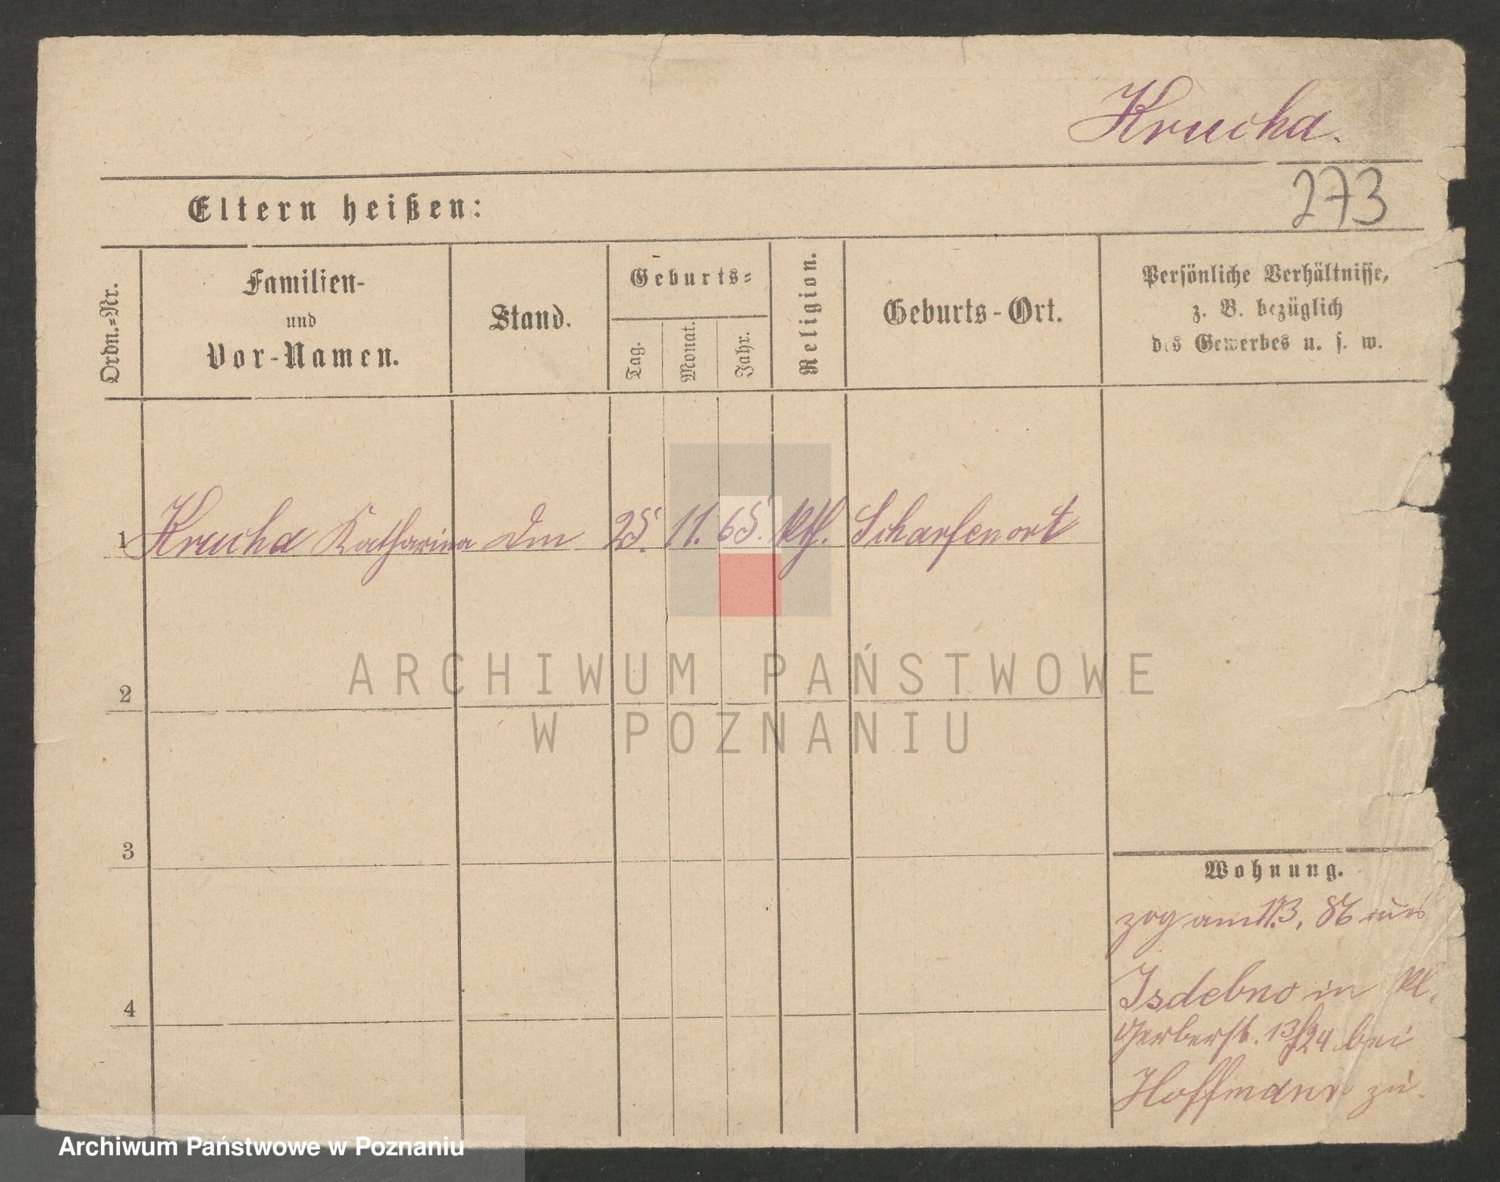 Krucha.
273
Eltern heißen:
Ordn.-Nr.
Familien-
und
Vor-Namen.
Stand.
Geburts-
Tag.
Monat.
Jahr.
Religion.
Geburts-Ort.
Persönliche Verhältnisse,
z. B. bezüglich
des Gewerbes u. s. w.
1 Krucha Katharina Dm 25. 11. 65. kth. Scharfenort
2
3
4
Wohnung.
zog am 11.3. 86 aus
Isdebno in Kl.
Gerberstr. 13/24 bei
Hoffmann zu.
ARCHIWUM PAŃSTWOWE
W POZNANIU
Archiwum Państwowe w Poznaniu